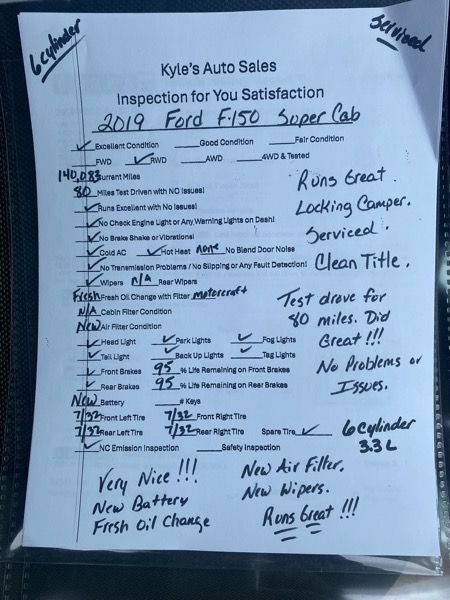 6 cylinder
Serviced
Kyle's Auto Sales
Inspection for You Satisfaction
2019 Ford F-150 Super Cab
✓ Excellent Condition ____Good Condition ____Fair Condition
____FWD ✓ RWD ____AWD ____4WD & Tested
140,083 Current Miles
80 Miles Test Driven with NO Issues!
✓ Runs Excellent with No Issues!
✓ No Check Engine Light or Any Warning Lights on Dash!
✓ No Brake Shake or Vibrations!
✓ Cold AC ✓ Hot Heat none No Blend Door Noise
✓ No Transmission Problems / No Slipping or Any Fault Detection!
✓ Wipers n/A Rear Wipers
Fresh Fresh Oil Change with Filter motorcraft
N/A Cabin Filter Condition
New Air Filter Condition
✓ Head Light ✓ Park Lights ✓ Fog Lights
✓ Tail Light ✓ Back Up Lights ✓ Tag Lights
✓ Front Brakes 95 % Life Remaining on Front Brakes
✓ Rear Brakes 95 % Life Remaining on Rear Brakes
New Battery ____# Keys
7/32 Front Left Tire 7/32 Front Right Tire
7/32 Rear Left Tire 7/32 Rear Right Tire Spare Tire ✓
✓ NC Emission Inspection ____Safety Inspection
Runs Great.
Locking Camper.
Serviced.
Clean Title.
Test drove for
80 miles. Did
Great!!!
No Problems or
Issues.
6 cylinder
3.3 L
Very Nice!!!
New Battery
Fresh Oil Change
New Air Filter.
New Wipers.
Runs Great!!!